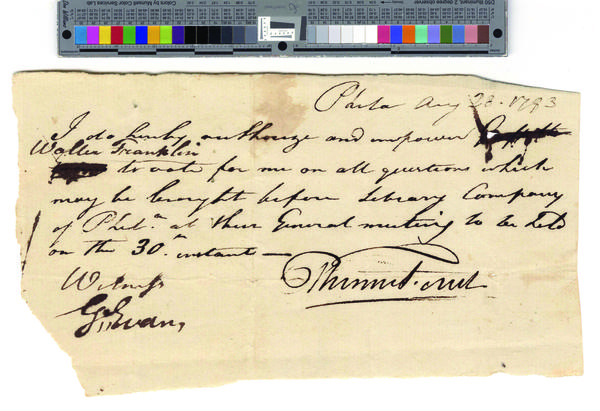 Phila Aug 28. 1793
I do hereby authorize and empower
Walter Franklin
to vote for me on all questions which
may be brought before Library Company
of Phila at their General meeting to be held
on the 30th instant —
Witness
G. Evans